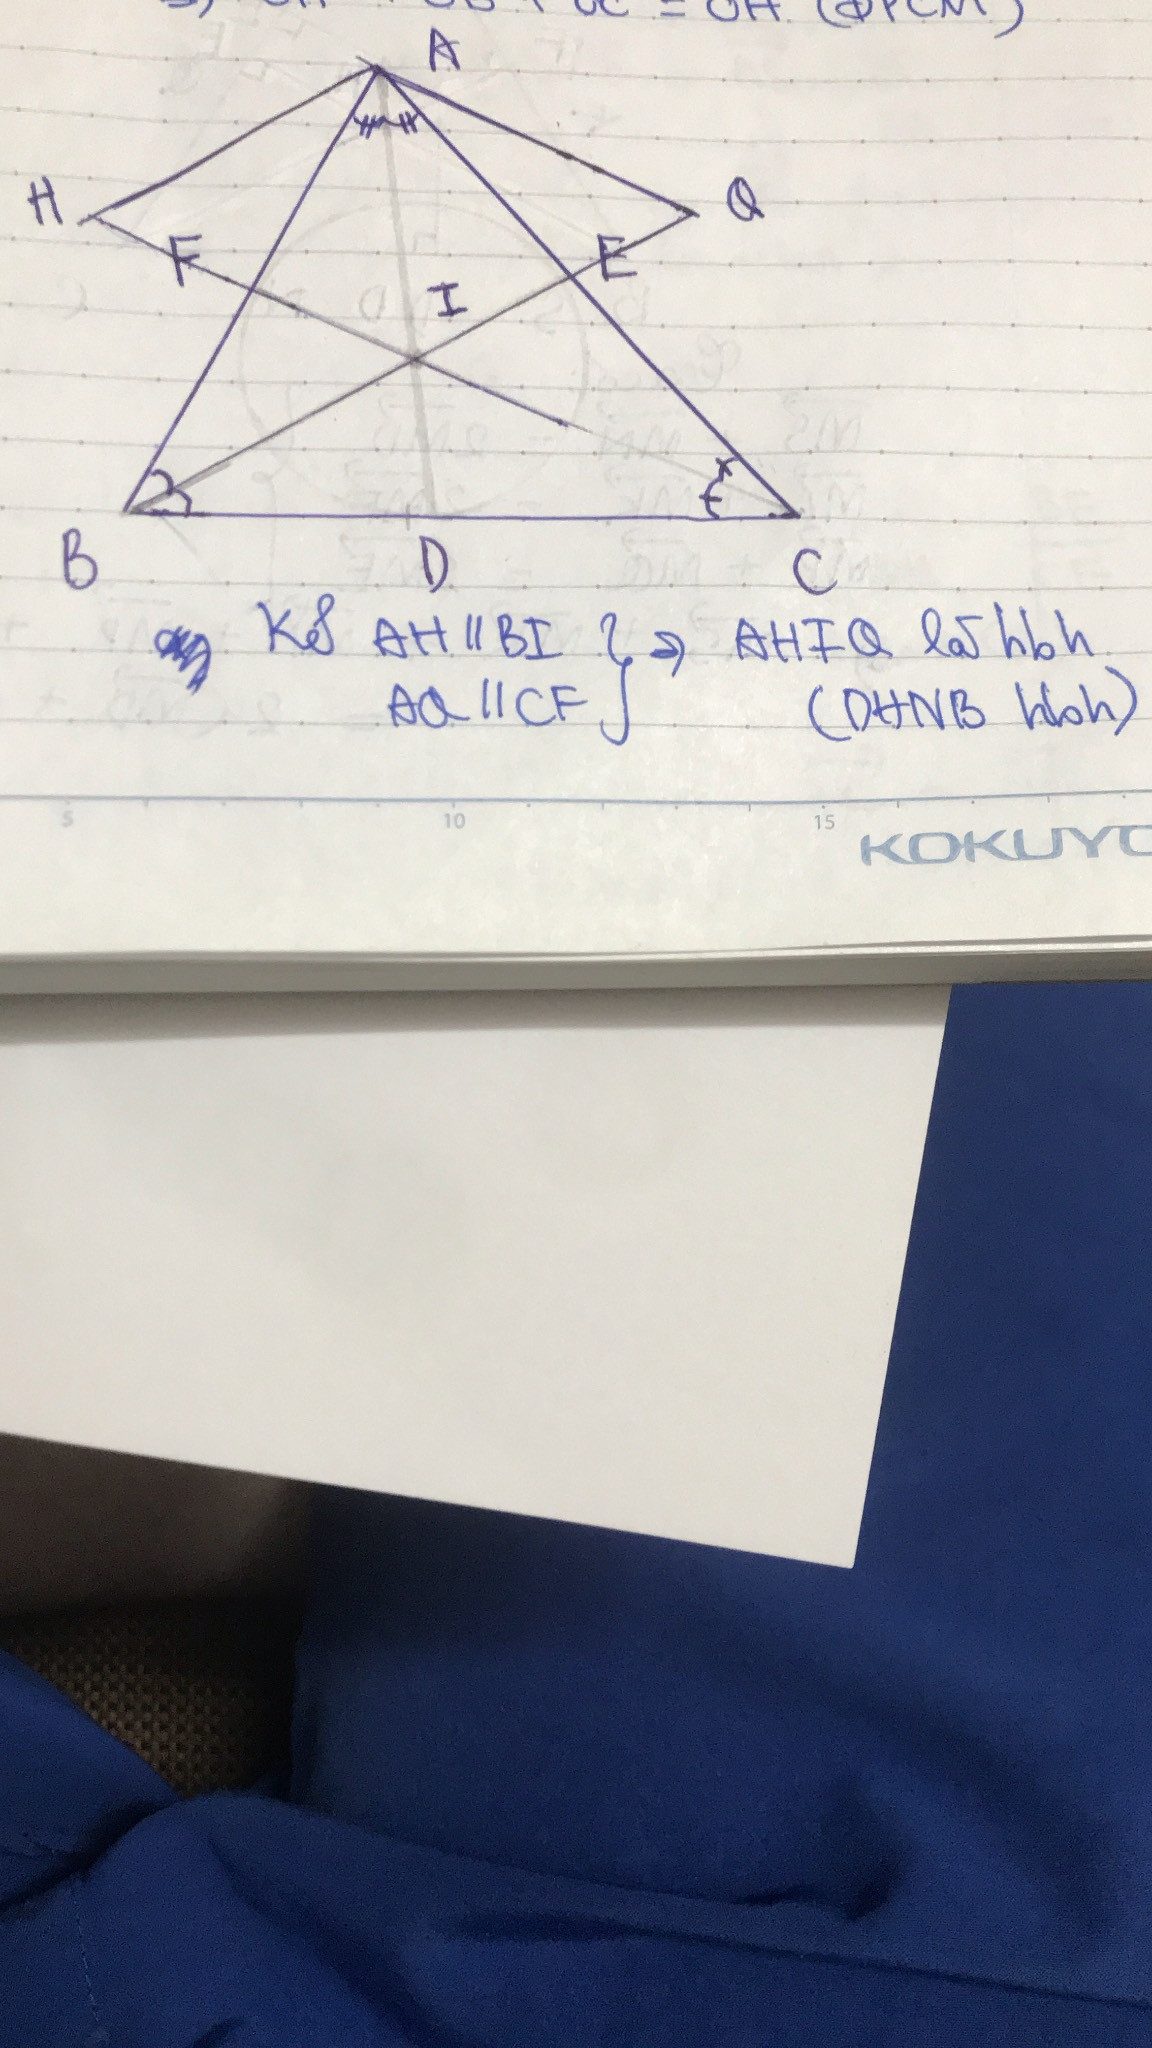 = OH (ĐPCM)
A
H
Q
F
E
I
B
D
C
Kẻ AH // BI } => AHIQ là hbh
AQ // CF (DHNB hbh)
5 10 15
KOKUYO